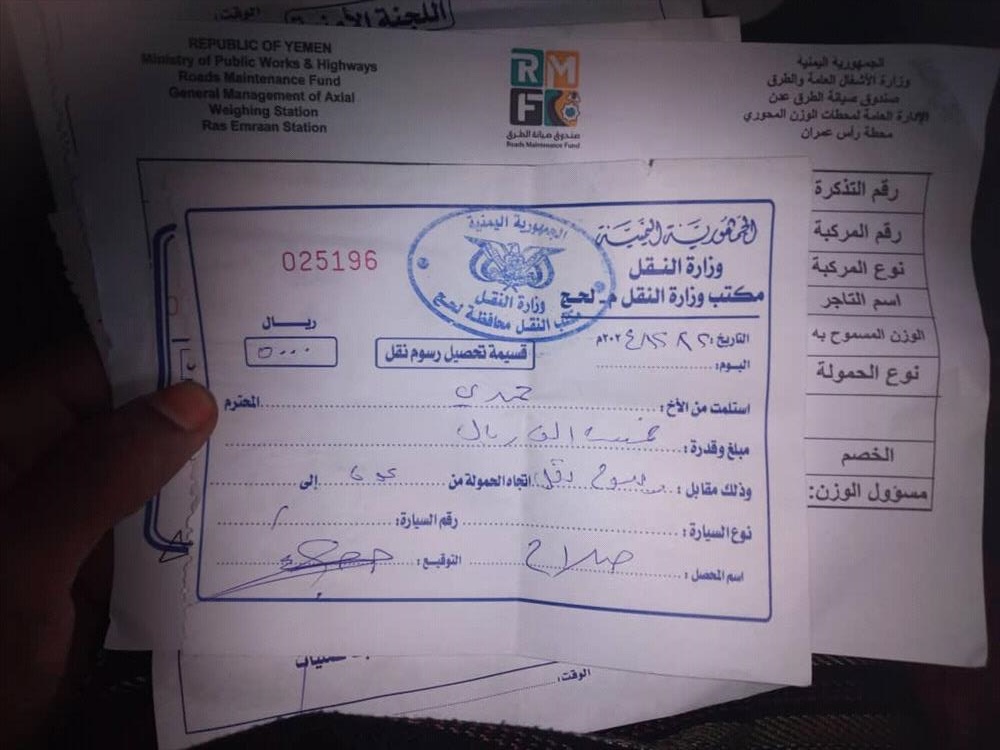 اللجنة الأمنية
الوقت:
REPUBLIC OF YEMEN
Ministry of Public Works & Highways
Roads Maintenance Fund
General Management of Axial
Weighing Station
Ras Emraan Station
RMF
صندوق صيانة الطرق
Roads Maintenance Fund
الجمهورية اليمنية
وزارة الأشغال العامة والطرق
صندوق صيانة الطرق عدن
الإدارة العامة لمحطات الوزن المحوري
محطة رأس عمران
رقم التذكرة
رقم المركبة
نوع المركبة
اسم التاجر
الوزن المسموح به
نوع الحمولة
الخصم
مسؤول الوزن:
الجمهورية اليمنية
وزارة النقل
مكتب وزارة النقل م- لحج
الجمهورية اليمنية
وزارة النقل
مكتب النقل محافظة لحج
025196
ريال
٥٠٠٠
قسيمة تحصيل رسوم نقل
التاريخ: ٢٠٢٤م
اليوم:
استلمت من الأخ: حمدي المحترم
مبلغ وقدرة: خمسة الف ريال
وذلك مقابل: رسوم نقل اتجاه الحمولة من إلى
نوع السيارة: رقم السيارة:
اسم المحصل: صلاح التوقيع:
الوقت: